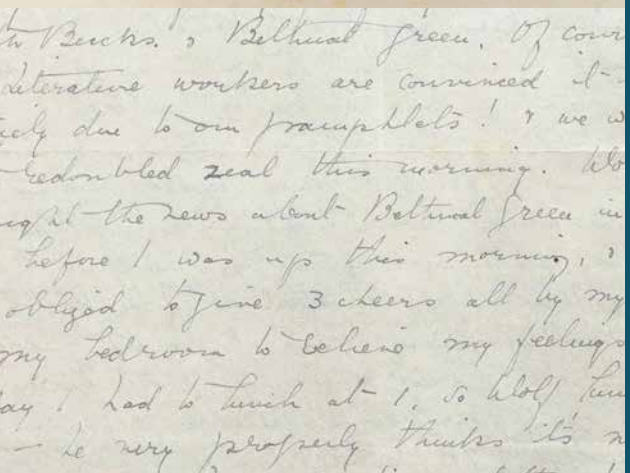 Bucks. & Bethnal Green. Of cour
Literature workers are convinced it
due to our pamphlets! & we w
redoubled zeal this morning. Wo
ught the news about Bethnal Green in
before I was up this morning, &
obliged to give 3 cheers all by my
my bedroom to relieve my feelings
ay I had to lunch at 1, so Wolf lun
— he very properly thinks it's n